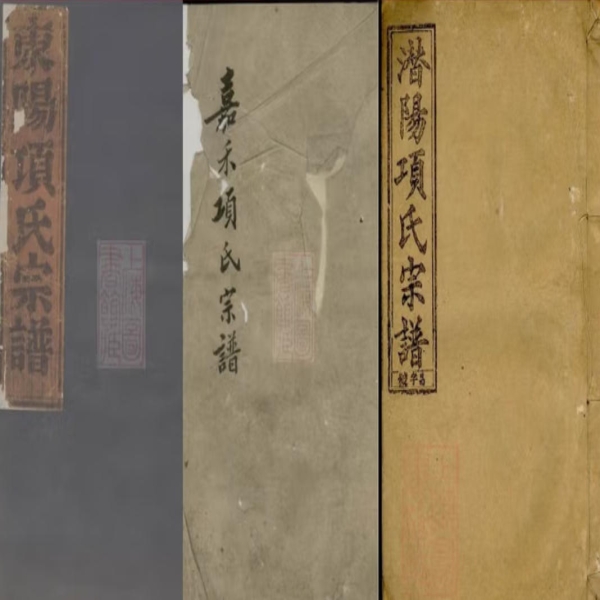 東陽項氏宗譜
嘉禾項氏宗譜
潛陽項氏宗譜